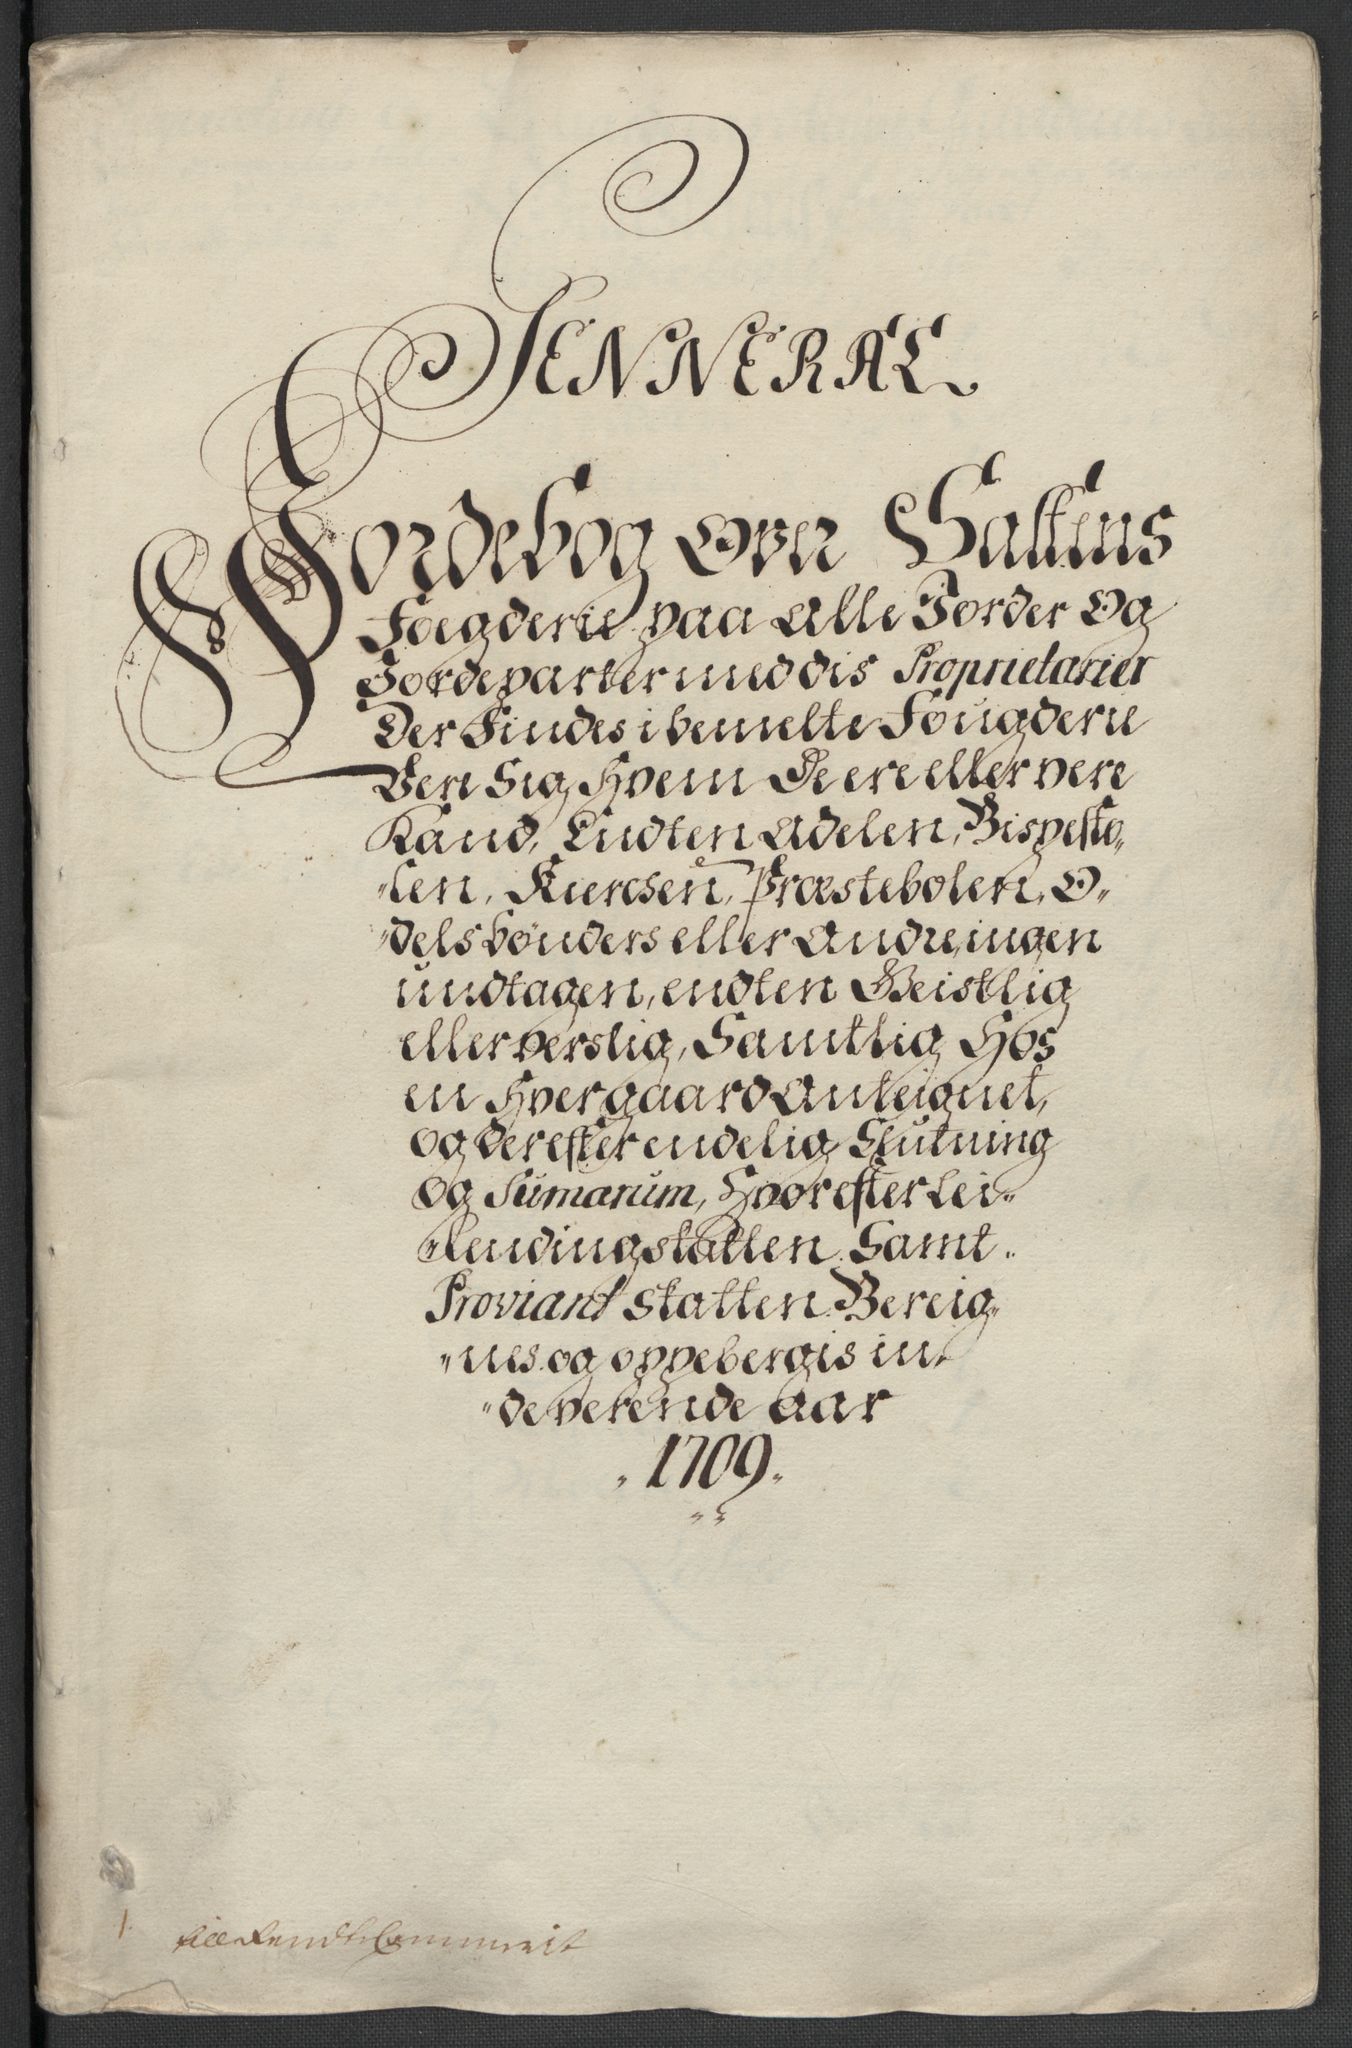 JENNERAL
Jordebog Over Saltens
Foegderie paa Alle Jorder Og
Jordeparter med dis Proprietarier
Der Findes i bemelte Fougderie
Vere Sig Hvem De ere eller vere
Kand, Endten Adelen, Bispesto„
„len, Kierchen, Præstebolen, O„
„delsbønders eller Andre, ingen
undtagen, endten Geistlig
eller verslig, Samtlig Hos
en Hver gaard Anteignet,
og der efter endelig Slutning
og Sumarum, Hvorefter Lei„
„lendingskatten Samt
Proviant skatten Bereig„
„nes og oppebergis in„
„deverende aar
„ 1709 „
1 till Rendte Cammerit